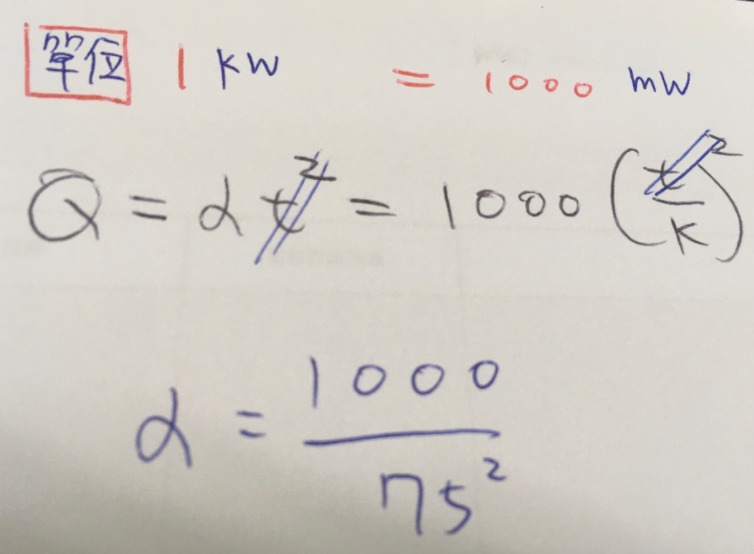 單位 1 KW = 1000 mW
Q = α t² = 1000 (t/K)²
α = 1000/75²